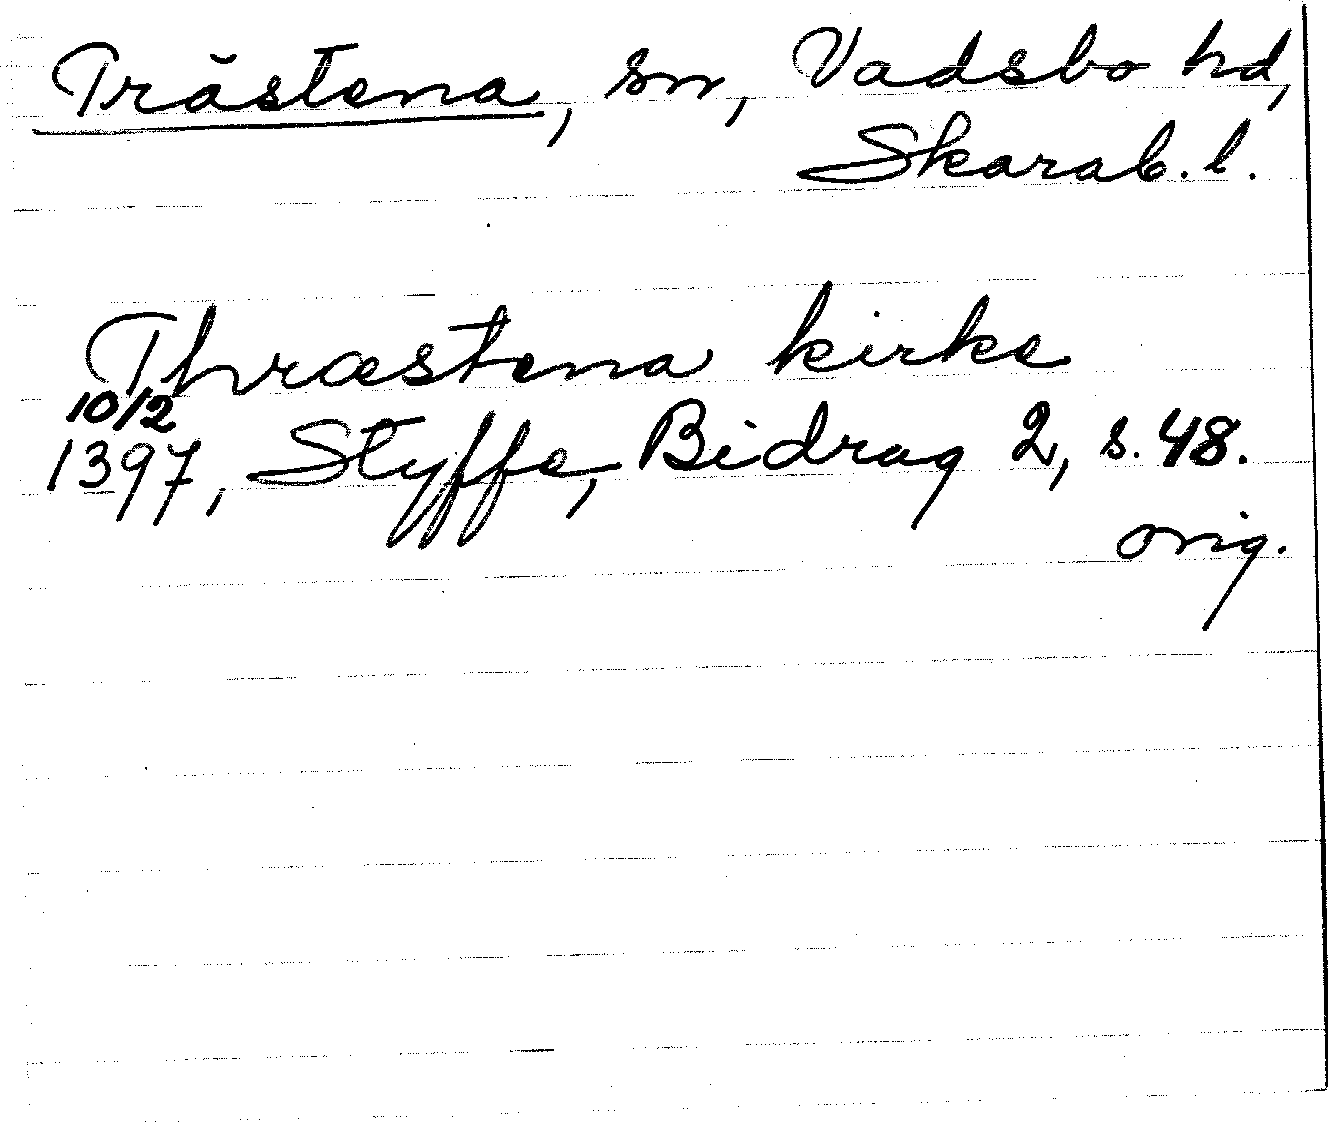 Trästena, sn, Vadsbo hd,
Skarab. l.
Thræstena kirke
10/2
1397, Styffe, Bidrag 2, s. 48.
orig.